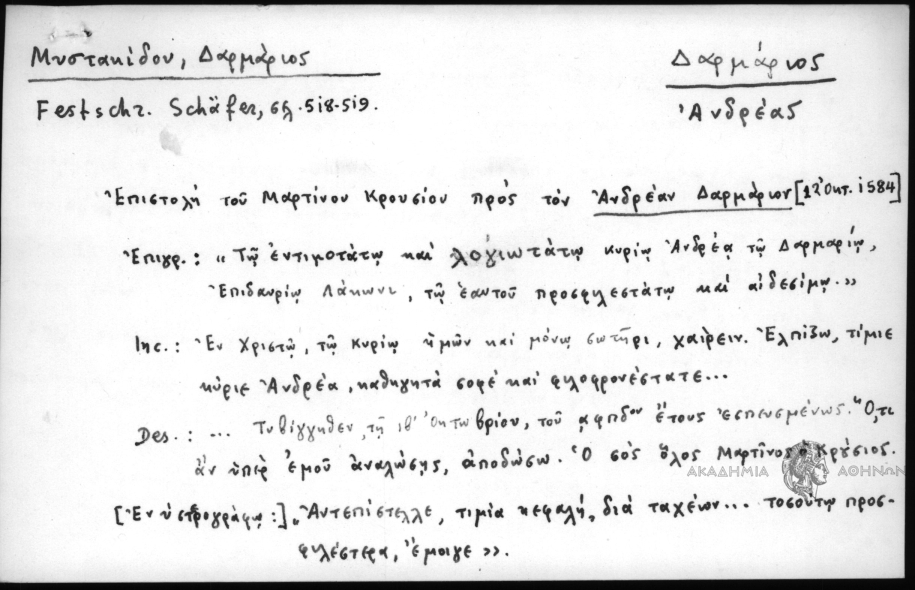 Μυστακίδου, Δαρμάριος
Δαρμάριος
Festschr. Schäfer, σελ. 518-519.
Ἀνδρέας
Ἐπιστολή τοῦ Μαρτίνου Κρουσίου πρός τόν Ἀνδρέαν Δαρμάριον [12 Ὀκτ. 1584]
Ἐπιγρ.: «Τῷ ἐντιμοτάτῳ καί λογιωτάτῳ κυρίῳ Ἀνδρέᾳ τῷ Δαρμαρίῳ,
Ἐπιδαυρίῳ Λάκωνι, τῷ ἑαυτοῦ προσφιλεστάτῳ καί αἰδεσίμῳ.»
Inc.: Ἐν Χριστῷ, τῷ κυρίῳ ἡμῶν καί μόνῳ σωτῆρι, χαίρειν. Ἐλπίζω, τίμιε
κύριε Ἀνδρέα, καθηγητά σοφέ καί φιλοφρονέστατε...
Des.: ... Τυβίγγηθεν, τῇ ιβ' Ὀκτωβρίου, τοῦ ͵αφπδον ἔτους ἐσπευσμένως. "Ὅ,τι
ἄν ὑπέρ ἐμοῦ ἀναλώσῃς, ἀποδώσω. Ὁ σός ὅλος Μαρτῖνος ὁ Κρούσιος.
ΑΚΑΔΗΜΙΑ ΑΘΗΝΩΝ
[Ἐν ὑστερογράφῳ:] "Ἀντεπίστελλε, τιμία κεφαλή, διά ταχέων... τοσούτῳ προσ-
φιλέστερα, ἔμοιγε».